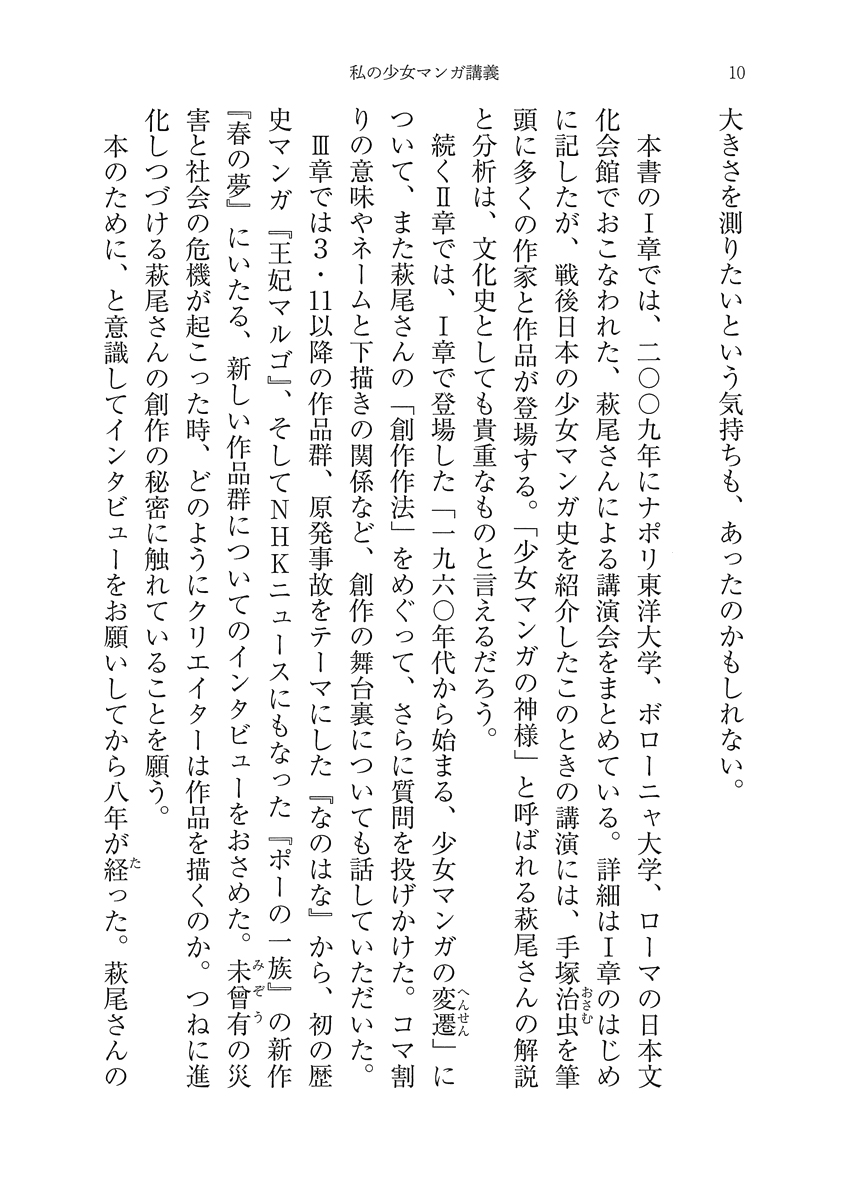 私の少女マンガ講義
10
大きさを測りたいという気持ちも、あったのかもしれない。
本書のⅠ章では、二〇〇九年にナポリ東洋大学、ボローニャ大学、ローマの日本文
化会館でおこなわれた、萩尾さんによる講演会をまとめている。詳細はⅠ章のはじめ
に記したが、戦後日本の少女マンガ史を紹介したこのときの講演には、手塚治虫を筆
頭に多くの作家と作品が登場する。「少女マンガの神様」と呼ばれる萩尾さんの解説
と分析は、文化史としても貴重なものと言えるだろう。
続くⅡ章では、Ⅰ章で登場した「一九六〇年代から始まる、少女マンガの変遷」に
ついて、また萩尾さんの「創作作法」をめぐって、さらに質問を投げかけた。コマ割
りの意味やネームと下描きの関係など、創作の舞台裏についても話していただいた。
Ⅲ章では3・11以降の作品群、原発事故をテーマにした『なのはな』から、初の歴
史マンガ『王妃マルゴ』、そしてNHKニュースにもなった『ポーの一族』の新作
『春の夢』にいたる、新しい作品群についてのインタビューをおさめた。未曾有の災
害と社会の危機が起こった時、どのようにクリエイターは作品を描くのか。つねに進
化しつづける萩尾さんの創作の秘密に触れていることを願う。
本のために、と意識してインタビューをお願いしてから八年が経った。萩尾さんの
おさむ
へんせん
みぞう
た